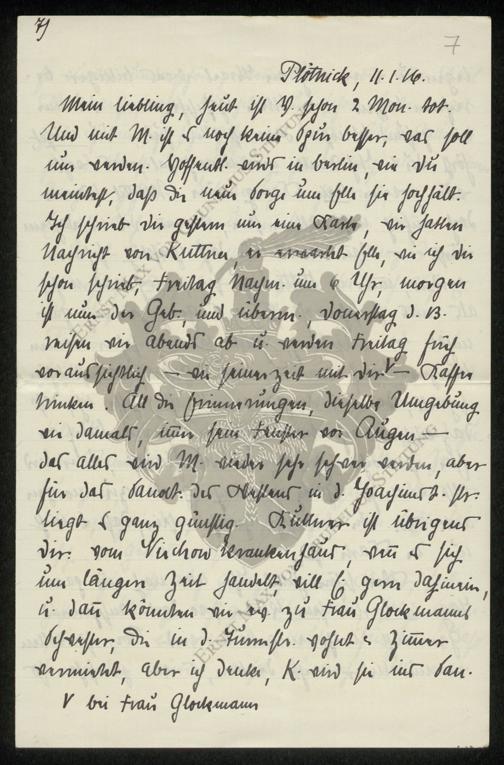 7)
7
Plötnick, 11.1.16.
Mein Liebling, heut ist V. schon 2 Mon. tot.
Und mit M. ist es noch keine Spur besser, was soll
nur werden. Hoffentl. wird's in Berlin, wie Du
meintest, daß die neue Sorge um Elle sie hochhält.
Ich schrieb Dir gestern nur eine Karte, wir hatten
Nachricht von Küttner, er erwartet Elle, wie ich Dir
schon schrieb, Freitag Nachm. um 6 Uhr, morgen
ist nun der Geb., und überm. Donnerstag d. 13.
reisen wir abends ab u. werden Freitag früh
voraussichtlich — wie seinerzeit mit Dir V — Kaffee
trinken. All die Erinnerungen, dieselbe Umgebung
wie damals, immer sein Fenster vor Augen —
das alles wird M. wieder sehr schwer werden, aber
für das Sanat. des Westens in d. Joachimst. Str.
liegt es ganz günstig. Küttner ist übrigens
Dir. vom Virchow Krankenhaus, wenn es sich
um längere Zeit handelt, will E. gern dahinein,
u. dann könnten wir ev. zu Frau Glockmanns
Schwester, die in d. Turmstr. wohnt u. Zimmer
vermietet, aber ich denke, K. wird sie ins San.
V bei Frau Glockmann
ERNST MAX VON GRUNELIUS-STIFTUNG
ERNST MAX VON GRUNELIUS-STIFTUNG